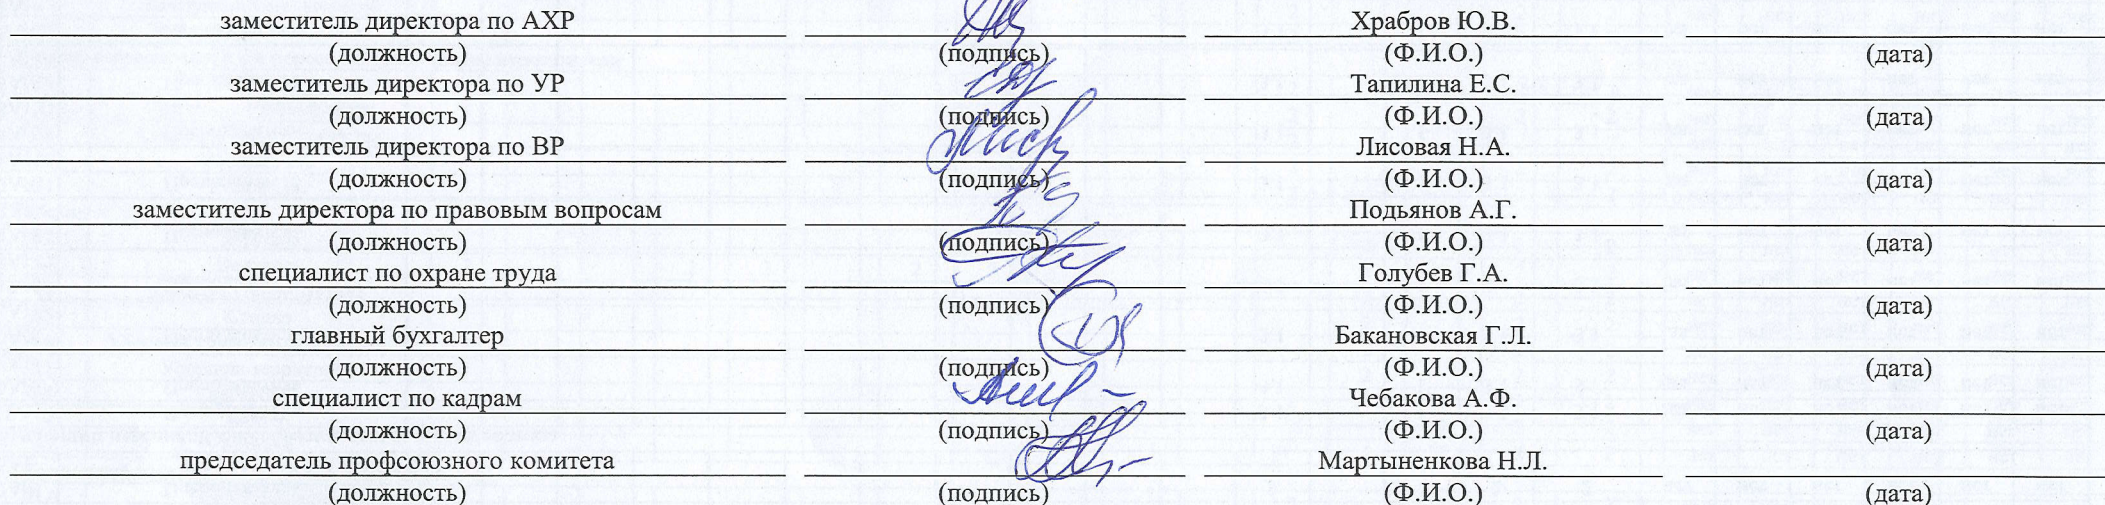 заместитель директора по АХР Храбров Ю.В.
(должность) (подпись) (Ф.И.О.) (дата)
заместитель директора по УР Тапилина Е.С.
(должность) (подпись) (Ф.И.О.) (дата)
заместитель директора по ВР Лисовая Н.А.
(должность) (подпись) (Ф.И.О.) (дата)
заместитель директора по правовым вопросам Подьянов А.Г.
(должность) (подпись) (Ф.И.О.) (дата)
специалист по охране труда Голубев Г.А.
(должность) (подпись) (Ф.И.О.) (дата)
главный бухгалтер Бакановская Г.Л.
(должность) (подпись) (Ф.И.О.) (дата)
специалист по кадрам Чебакова А.Ф.
(должность) (подпись) (Ф.И.О.) (дата)
председатель профсоюзного комитета Мартыненкова Н.Л.
(должность) (подпись) (Ф.И.О.) (дата)